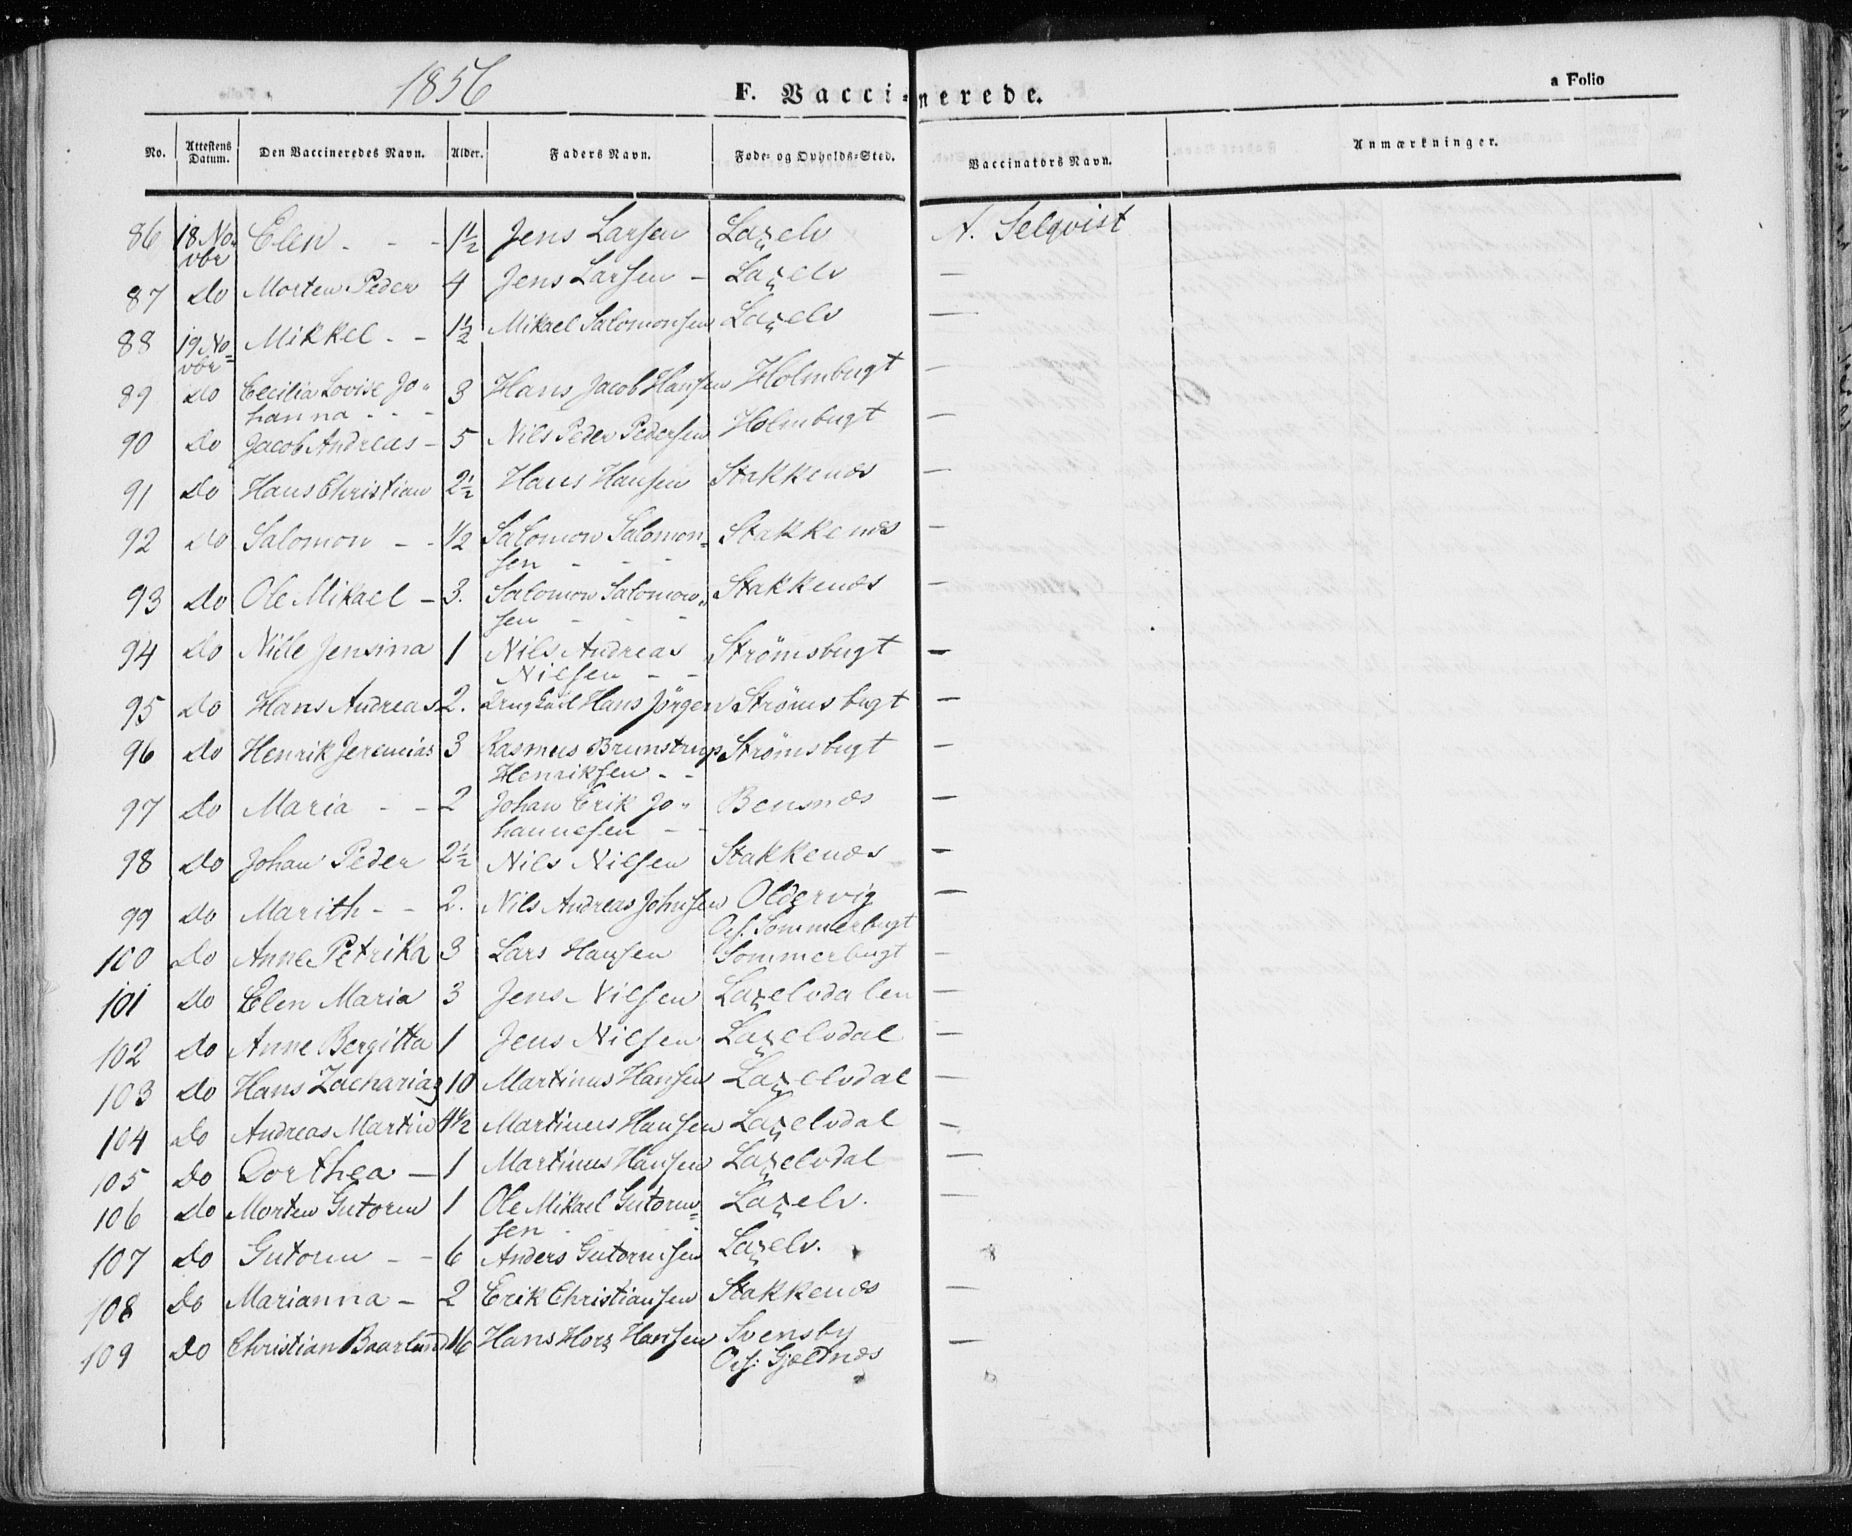 1856 F. Vaccinerede. a Folio
No. Attestens Datum. Den Vaccineredes Navn. Alder. Faders Navn. Føde- og Opholds-Sted. Vaccinators Navn. Anmærkninger.
86 18 No- Elen - - - 1½ Jens Larsen Laxelv A. Selqvist
vbr
87 Do Morten Peder 4 Jens Larsen - Laxelv —
88 19 No= Mikkel - - 1½ Mikael Salomonsen Laxelv —
vbr
89 do Cecilia Lovise Jo= 3 Hans Jacob Hansen Holmbugt —
hanna - - -
90 do Jacob Andreas - 5 Nils Peder Pedersen Holmbugt —
91 Do Hans Christian 2½ Hans Hansen Stakkenæs —
92 do Salomon - - ½ Salomon Salomon= Stakkenæs —
sen - - -
93 Do Ole Mikael - 3. Salomon Salomon= Stakkenæs —
sen - - -
94 Do Nille Jensina 1 Nils Andreas Strømsbugt —
Nilsen - -
95 do Hans Andreas 2. Hans Jörgen Strømsbugt —
96 do Henrik Jeremias 3 Rasmus Brunstrup Strømsbugt —
Henriksen - -
97 Do Maria - - 2 Johan Erik Jo= Bensnæs —
hannesen - -
98 Do Johan Peder 2½ Nils Nilsen Stakkenæs —
99 Do Marith - - 2. Nils Andreas Johnsen Oldervig —
Os. Sommerbugt
100 Do Anne Petrika 3 Lars Hansen Sommerbugt —
101 Do Elen Maria 3 Jens Nilsen Laxelvdalen —
102 Do Anne Bergitta 1 Jens Nilsen Laxelvdal —
103 Do Hans Zacharias 10 Martinus Hansen Laxelvdal —
104 do Andreas Martin 4½ Martinus Hansen Laxelvdal —
105 Do Dorthea — 1 Martinus Hansen Laxelvdal —
106 do Morten Gutorm 1 Ole Mikael Gutorm= Laxelv. —
sen - - -
107 Do Gutorm - - 6 Anders Gutormsen Laxelv. —
108 Do Marianna - 2 Erik Christiansen Stakkenæs —
109 Do Christian Baarlund 16 Hans Hansen Svensby —
Os: Gjæltnæs